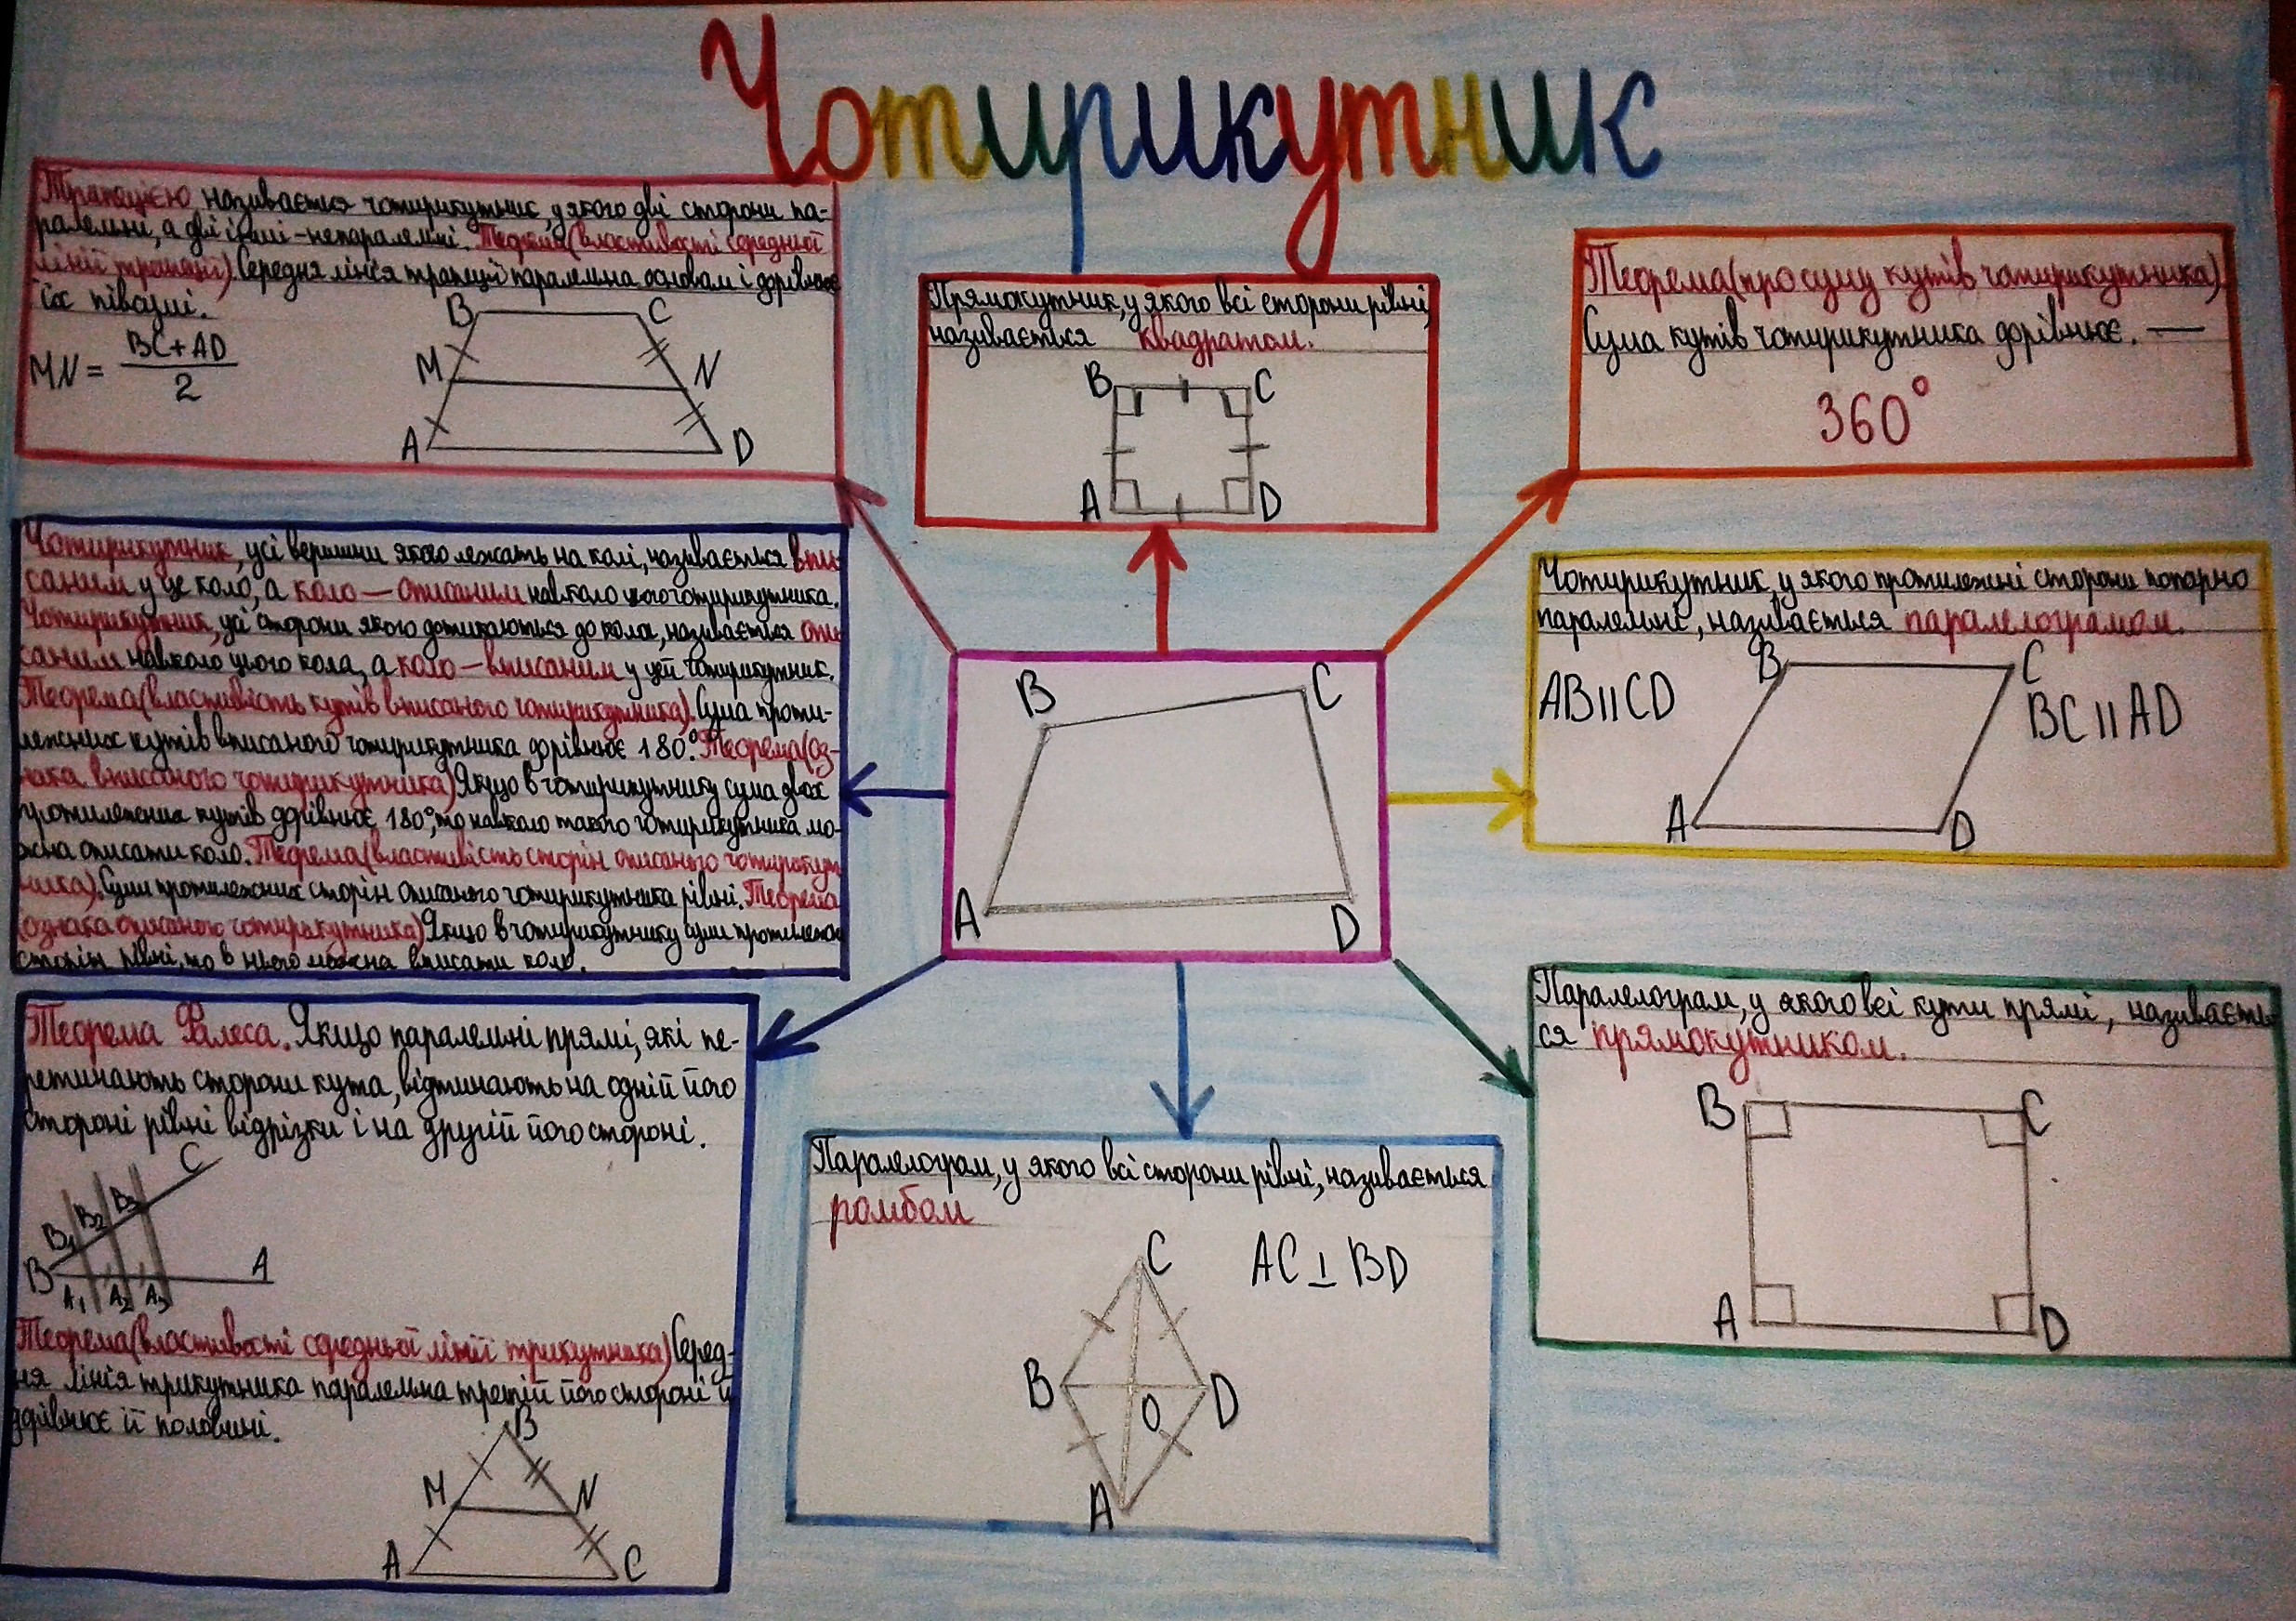 Чотирикутник
Трапецією називається чотирикутник, у якого дві сторони па-
ралельні, а дві інші – непаралельні. Теорема (властивості середньої
лінії трапеції) Середня лінія трапеції паралельна основам і дорівнює
їх півсумі.
MN = BC+AD / 2
B C
M N
A D
Прямокутник, у якого всі сторони рівні,
називається квадратом.
B C
A D
Теорема (про суму кутів чотирикутника)
Сума кутів чотирикутника дорівнює. —
360°
Чотирикутник, усі вершини якого лежать на колі, називається впи-
саним у це коло, а коло — описаним навколо цього чотирикутника.
Чотирикутник, усі сторони якого дотикаються до кола, називається опи-
саним навколо цього кола, а коло — вписаним у цей чотирикутник.
Теорема (властивість кутів вписаного чотирикутника). Сума проти-
лежних кутів вписаного чотирикутника дорівнює 180°. Теорема (оз-
нака вписаного чотирикутника) Якщо в чотирикутнику сума двох
протилежних кутів дорівнює 180°, то навколо такого чотирикутника мо-
жна описати коло. Теорема (властивість сторін описаного чотирикут
ника). Суми протилежних сторін описаного чотирикутника рівні. Теорема
(ознака описаного чотирикутника) Якщо в чотирикутнику суми протилежн
сторін рівні, то в нього можна вписати коло.
B C
A D
Чотирикутник, у якого протилежні сторони попарно
паралельні, називається паралелограмом.
B C
AB || CD
BC || AD
A D
Теорема Фалеса. Якщо паралельні прямі, які пе-
ретинають сторони кута, відтинають на одній його
стороні рівні відрізки і на другій його стороні.
C
B₁ B₂ B₃
B A
A₁ A₂ A₃
Теорема (властивості середньої лінії трикутника) Серед-
ня лінія трикутника паралельна третій його стороні й
дорівнює її половині.
B
M N
A C
Паралелограм, у якого всі сторони рівні, називається
ромбом
C
AC ⊥ BD
B O D
A
Паралелограм, у якого всі кути прямі, називаєть
ся прямокутником.
B C
A D